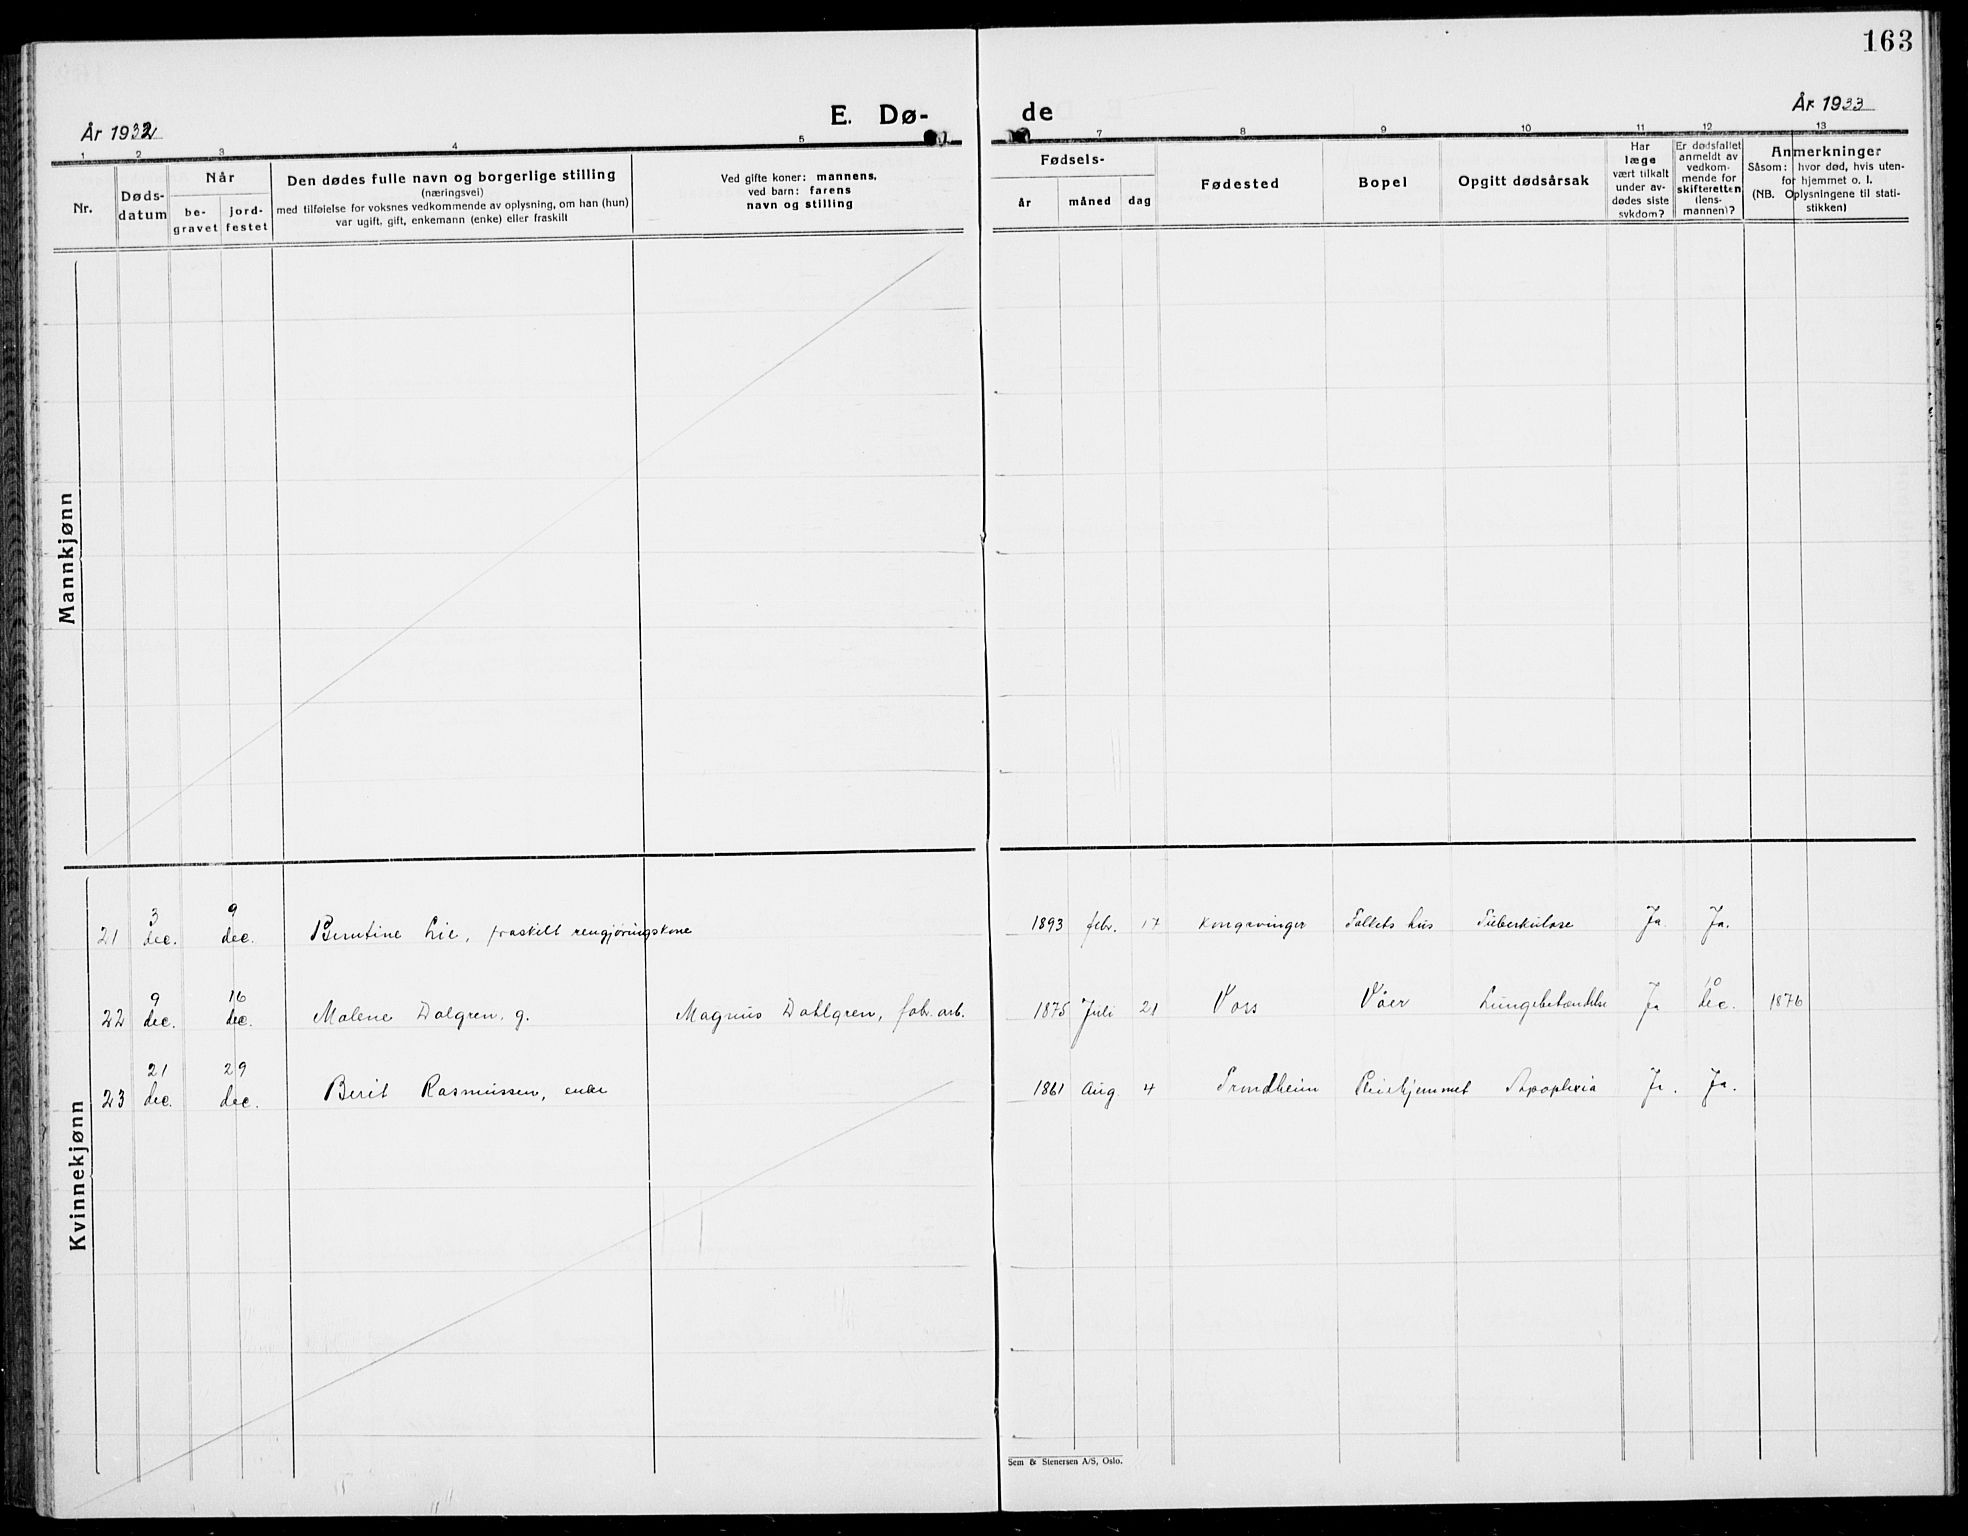 163
År 1932
E. Dø-
de
År 1933
1 2 3 4 5 7 8 9 10 11 12 13
Nr.
Døds-
datum
Når
be-
gravet
jord-
festet
Den dødes fulle navn og borgerlige stilling
(næringsvei)
med tilføielse for voksnes vedkommende av oplysning, om han (hun)
var ugift, gift, enkemann (enke) eller fraskilt
Ved gifte koner: mannens,
ved barn: farens
navn og stilling
Fødsels-
år
måned
dag
Fødested
Bopel
Opgitt dødsårsak
Har
læge
vært tilkalt
under av-
dødes siste
sykdom?
Er dødsfallet
anmeldt av
vedkom-
mende for
skifteretten
(lens-
mannen)?
Anmerkninger
Såsom: hvor død, hvis uten-
for hjemmet o. l.
(NB. Oplysningene til stati-
stikken)
Mannkjønn
Kvinnekjønn
21 3 dec. 9 dec. Berntine Lie, fraskilt rengjøringskone 1893 febr. 17 Kongsvinger Folkets hus Tuberkulose Ja. Ja.
22 9 dec. 16 dec. Malene Dalgren, g. Magnus Dahlgren, fabr. arb. 1875 Juli 21 Voss Våer Lungebetændelse Ja 10 dec. 1876
23 21 dec. 29 dec. Berit Rasmussen, enke 1861 Aug. 4 Trondheim Pleiehjemmet Apoplexia Ja. Ja.
Sem & Stenersen A/S, Oslo.